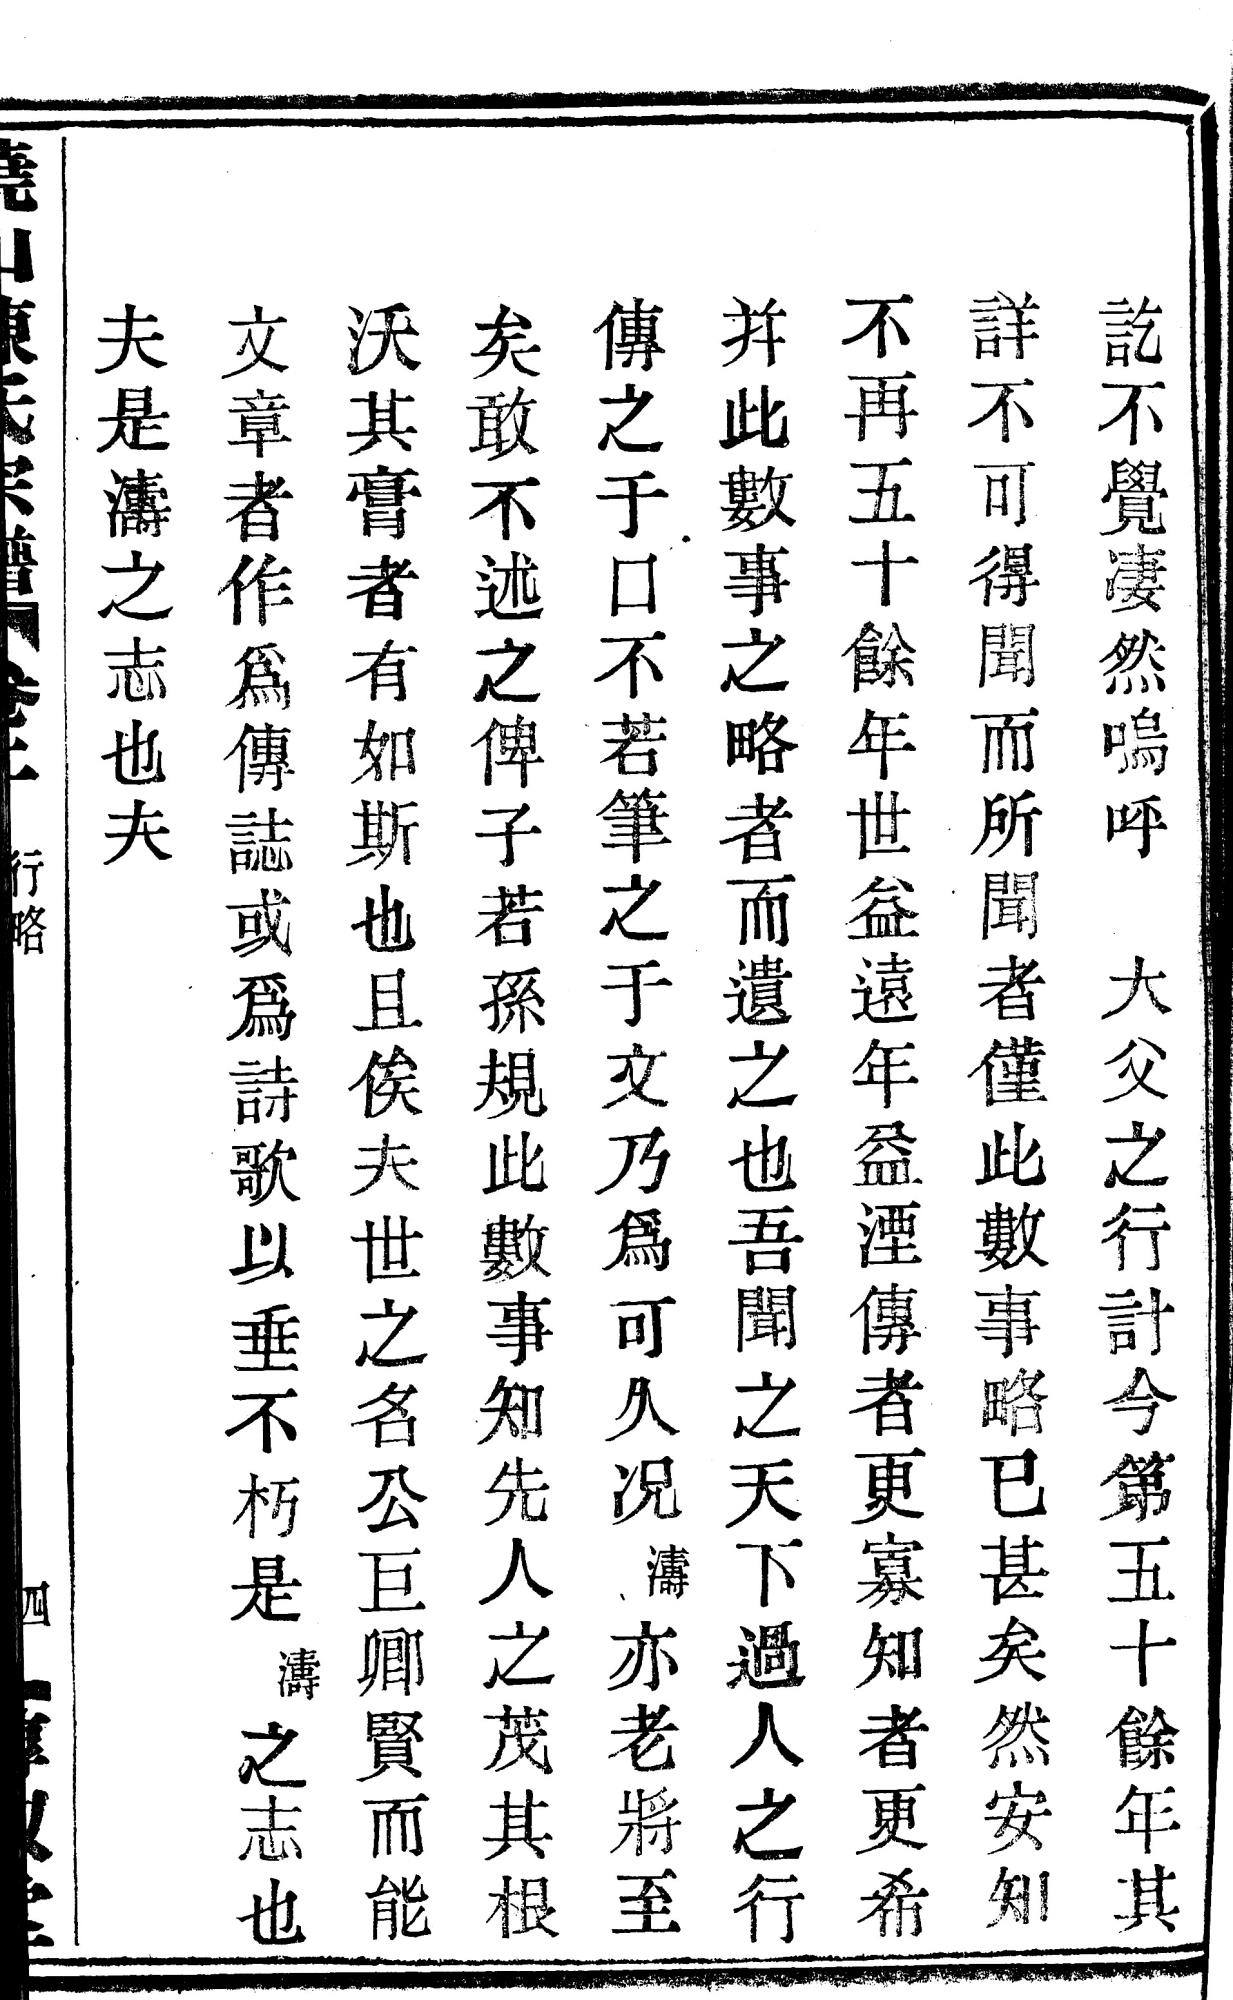 訖不覺凄然嗚呼　大父之行計今第五十餘年其
詳不可得聞而所聞者僅此數事略已甚矣然安知
不再五十餘年世益遠年益湮傳者更寡知者更希
并此數事之略者而遺之也吾聞之天下過人之行
傳之于口不若筆之于文乃爲可久况濤亦老將至
矣敢不述之俾子若孫規此數事知先人之茂其根
沃其膏者有如斯也且俟夫世之名公巨卿賢而能
文章者作爲傳誌或爲詩歌以垂不朽是濤之志也
夫是濤之志也夫
山陳氏宗譜
行略
四